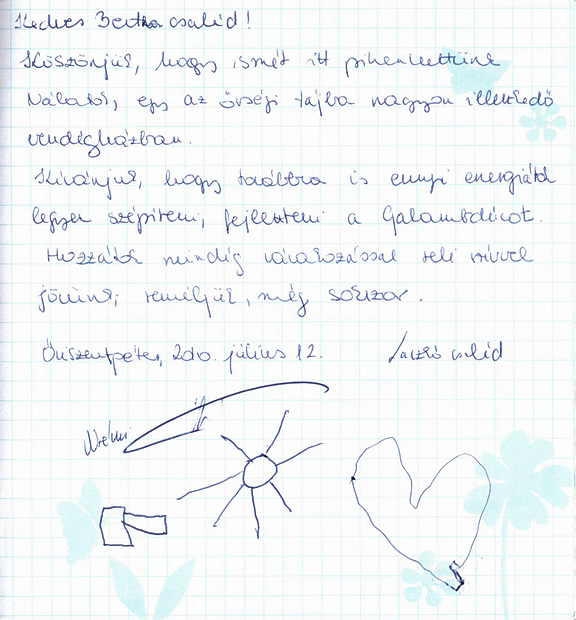 Kedves Bertha család!
Köszönjük, hogy ismét itt pihenhettünk
Nálatok, egy az őrségi tájba nagyon illeszkedő
vendégházban.
Kívánjuk, hogy továbbra is ennyi energiátok
legyen szépíteni, fejleszteni a Galambdúcot.
Hozzátok mindig várakozással teli szívvel
jövünk; reméljük, még sokszor.
Őriszentpéter, 2010. július 12.
László család